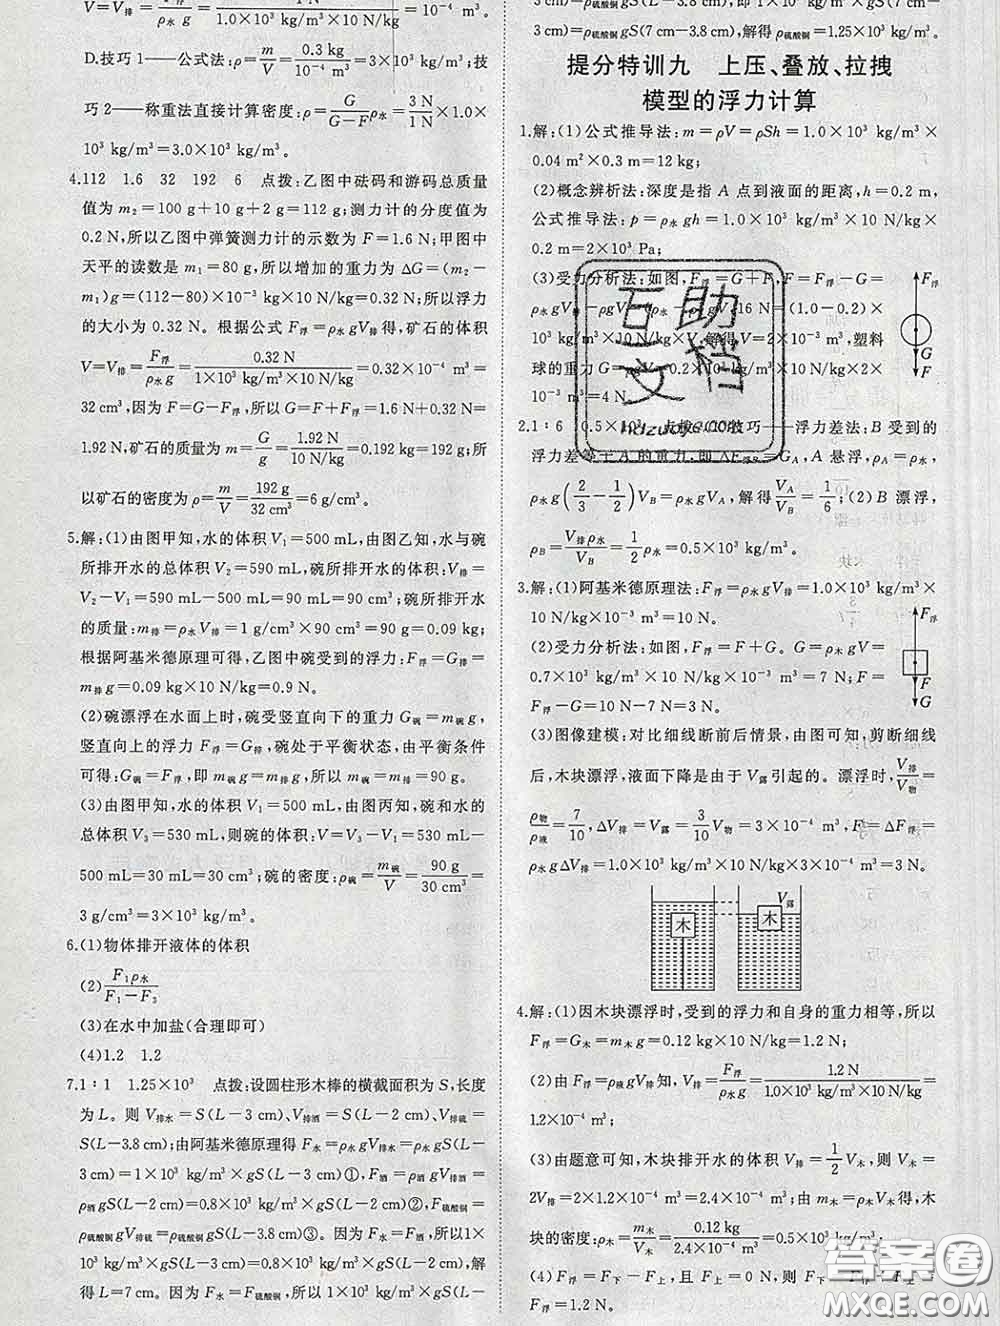 V=V排=F浮/ρ水g=   /1.0×10³ kg/m³×10 N/kg=10⁻⁴ m³;
D.技巧1——公式法:ρ=m/V=0.3 kg/10⁻⁴ m³=3×10³ kg/m³;技
巧2——称重法直接计算密度:ρ=G/G-F ρ水=3 N/1 N×1.0×
10³ kg/m³=3.0×10³ kg/m³。
4.112 1.6 32 192 6 点拨:乙图中砝码和游码总质量
值为m₂=100 g+10 g+2 g=112 g;测力计的分度值为
0.2 N,所以乙图中弹簧测力计的示数为F=1.6 N;甲图中
天平的读数是m₁=80 g,所以增加的重力为ΔG=(m₂-
m₁)g=(112-80)×10⁻³ kg×10 N/kg=0.32 N;所以浮力
的大小为0.32 N。根据公式F浮=ρ水gV排得,矿石的体积
V=V排=F浮/ρ水g=0.32 N/1×10³ kg/m³×10 N/kg=0.32×10⁻⁴ m³=
32 cm³,因为F=G-F浮,所以G=F+F浮=1.6 N+0.32 N=
1.92 N,矿石的质量为m=G/g=1.92 N/10 N/kg=0.192 kg=192 g;所
以矿石的密度为ρ=m/V=192 g/32 cm³=6 g/cm³。
5.解:(1)由图甲知,水的体积V₁=500 mL,由图乙知,水与碗
所排开水的总体积V₂=590 mL,碗所排开水的体积:V排
=V₂-V₁=590 mL-500 mL=90 mL=90 cm³;碗所排开水
的质量:m排=ρ水V排=1 g/cm³×90 cm³=90 g=0.09 kg;
根据阿基米德原理可得,乙图中碗受到的浮力:F浮=G排=
m排g=0.09 kg×10 N/kg=0.9 N。
(2)碗漂浮在水面上时,碗受竖直向下的重力G碗=m碗g,
竖直向上的浮力F浮=G排;碗处于平衡状态,由平衡条件
可得:G碗=F浮,即m碗g=m排g,所以m碗=m排=90 g。
(3)由图甲知,水的体积V₁=500 mL,由图丙知,碗和水的
总体积V₃=530 mL,则碗的体积:V=V₃-V₁=530 mL-
500 mL=30 mL=30 cm³;碗的密度:ρ碗=m碗/V=90 g/30 cm³=
3 g/cm³=3×10³ kg/m³。
6.(1)物体排开液体的体积
(2)F₁ρ水/F₁-F₃
(3)在水中加盐(合理即可)
(4)1.2 1.2
7.1∶1 1.25×10³ 点拨:设圆柱形木棒的横截面积为S,长度
为L。则V排水=S(L-3 cm)、V排酒=S(L-2 cm)、V排硫=
S(L-3.8 cm);由阿基米德原理得F水=ρ水gV排水=ρ水gS(L-
3 cm)=1×10³ kg/m³×gS(L-3 cm)①,F酒=ρ酒gV排酒=
ρ酒gS(L-2 cm)=0.8×10³ kg/m³×gS(L-2 cm)②,F硫酸铜=
ρ硫酸铜gV排硫=ρ硫酸铜gS(L-3.8 cm)③。因为F水=F酒,所以1×
10³ kg/m³×gS(L-3 cm)=0.8×10³ kg/m³×gS(L-2 cm),解
得L=7 cm。因为F水=F硫酸铜,所以1×10³ kg/m³×gS(L-
3 cm)=ρ硫酸铜gS(L-3.8 cm),即1×10³ kg/m³×gS(7 cm-
3 cm)=ρ硫酸铜gS(7 cm-3.8 cm),解得ρ硫酸铜=1.25×10³ kg/m³。
提分特训九 上压、叠放、拉拽
模型的浮力计算
1.解:(1)公式推导法:m=ρV=ρSh=1.0×10³ kg/m³×
0.04 m²×0.3 m=12 kg;
(2)概念辨析法:深度是指A点到液面的距离,h=0.2 m,
公式推导法:p=ρ水gh=1.0×10³ kg/m³×10 N/kg×
0.2 m=2×10³ Pa;
(3)受力分析法:如图,F浮=G+F,F=F浮-G=
ρ水gV排-ρgV=(ρ水-ρ)gV,16 N=(1.0-0.2)×
10³ kg/m³×10 N/kg×V,解得V=2×10⁻³ m³,塑料
球的重力G=ρgV=0.2×10³ kg/m³×10 N/kg×2×
10⁻³ m³=4 N。
F浮
G
F
2.1∶6 0.5×10³ 点拨:(1)技巧——浮力差法:B受到的
浮力差等于A的重力,即ΔF浮B=GA,A悬浮,ρA=ρ水,
ρ水g(2/3-1/2)VB=ρ水gVA,解得VA/VB=1/6;(2)B漂浮,
ρB=V排ρ水/VB=1/2ρ水=0.5×10³ kg/m³。
3.解:(1)阿基米德原理法:F浮=ρ水gV排=1.0×10³ kg/m³×
10 N/kg×10⁻³ m³=10 N;
(2)受力分析法:如图,F浮=F+G。G=ρ木gV=
0.7×10³ kg/m³×10 N/kg×10⁻³ m³=7 N;F=
F浮-G=10 N-7 N=3 N;
F浮
F
G
(3)图像建模:对比细线断前后情景,由图可知,剪断细线
后,木块漂浮,液面下降是由于V露引起的。漂浮时,V排/V物=
ρ物/ρ液=7/10,ΔV排=V露=3/10V物=3×10⁻⁴ m³,F=ΔF浮=
ρ水gΔV排=1.0×10³ kg/m³×10 N/kg×3×10⁻⁴ m³=3 N。
木
木
V露
4.解:(1)因木块漂浮时,受到的浮力和自身的重力相等,所以
F浮=G木=m木g=0.12 kg×10 N/kg=1.2 N;
(2)由F浮=ρ液gV排知,V排=F浮/ρ水g=1.2 N/1.0×10³ kg/m³×10 N/kg=
1.2×10⁻⁴ m³;
(3)由题意可知,木块排开水的体积V排=1/2V木,则V木=
2V排=2×1.2×10⁻⁴ m³=2.4×10⁻⁴ m³;由m木=ρ木V木得,木
块的密度:ρ木=m木/V木=0.12 kg/2.4×10⁻⁴ m³=
(4)F浮=F下-F上,且F上=0 N,则
F浮=1.2 N。
互助
文档
答案圈
MXQE.COM